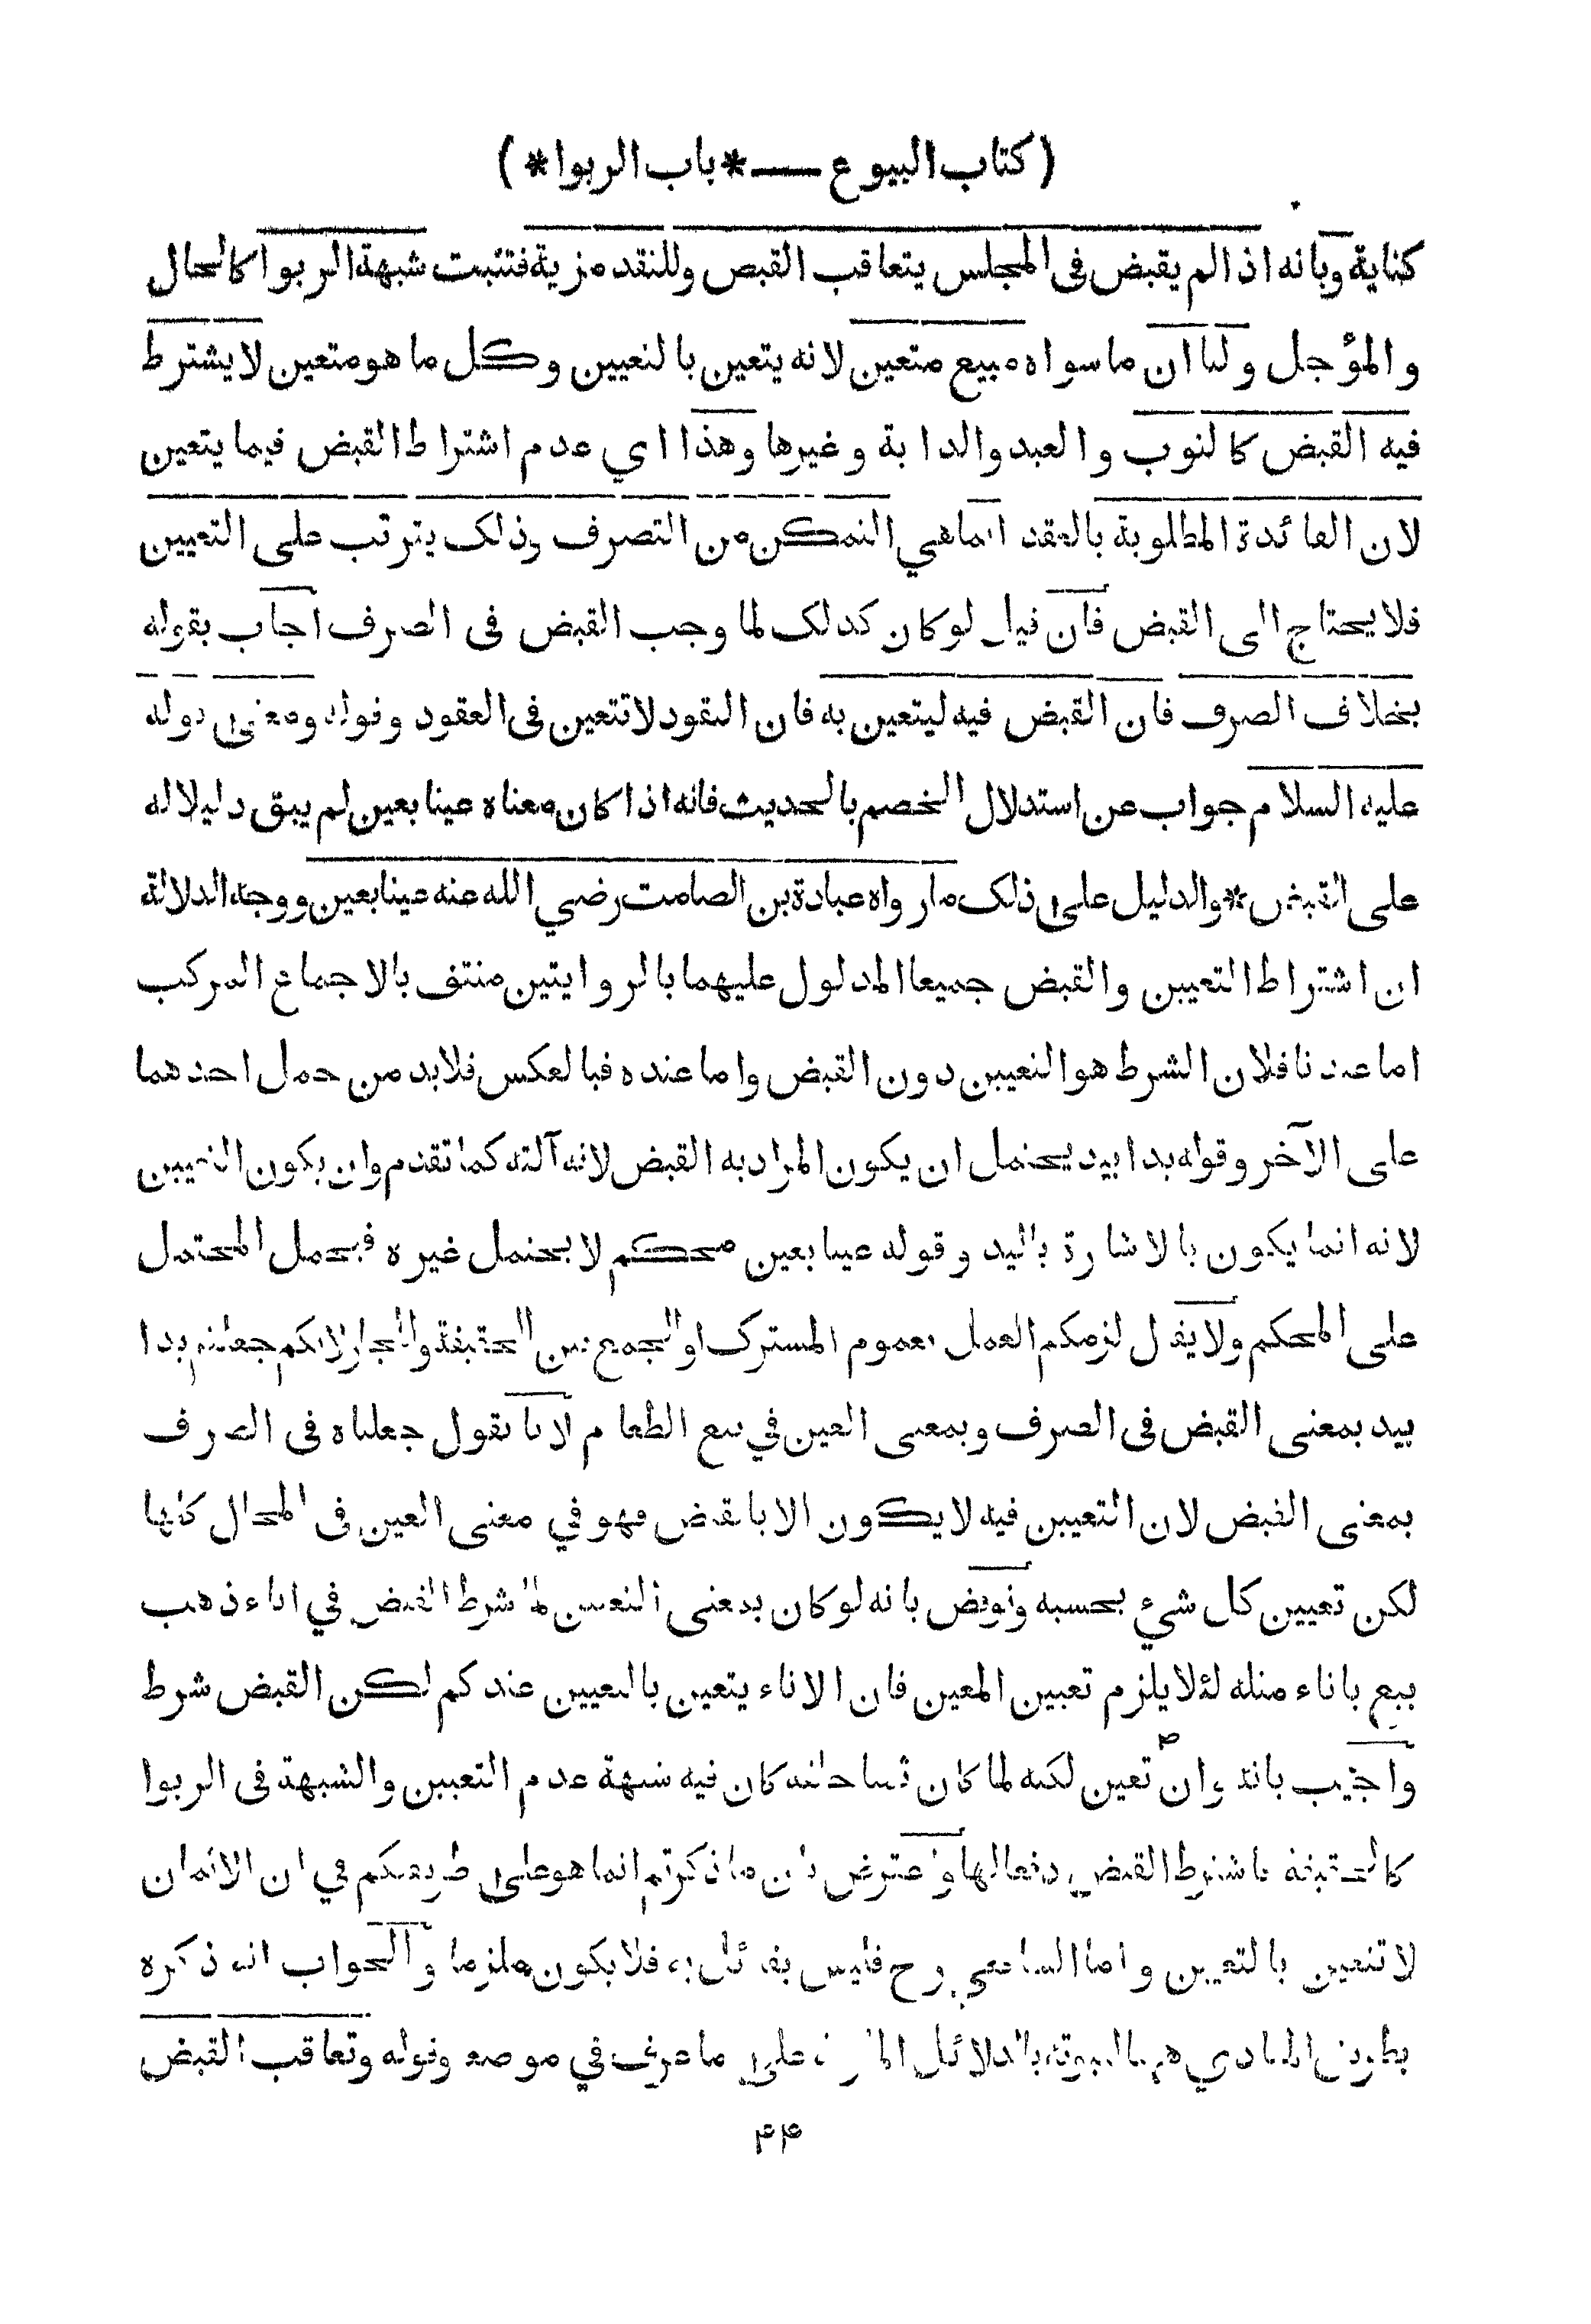 ( كتاب البيوع — * باب الربوا * )
كناية وبانه اذا لم يقبض فى المجلس يتعاقب القبض وللنقد مزية فتثبت شبهة الربوا كالحال
والمؤجل ولنا ان ما سواه مبيع متعين لانه يتعين بالتعيين وكل ما هو متعين لا يشترط
فيه القبض كالثوب والعبد والدابة وغيرها وهذا اي عدم اشتراط القبض فيما يتعين
لان الفائدة المطلوبة بالعقد انما هي التمكن من التصرف وذلك يترتب على التعيين
فلا يحتاج الى القبض فان قيل لو كان كذلك لما وجب القبض فى الصرف اجاب بقوله
بخلاف الصرف فان القبض فيه ليتعين به فان النقود لا تتعين فى العقود وقوله ومعنى قوله
عليه السلام جواب عن استدلال الخصم بالحديث فانه اذا كان معناه عينا بعين لم يبق دليلا له
على القبض * والدليل على ذلك ما رواه عبادة بن الصامت رضي الله عنه عينا بعين ووجه الدلالة
ان اشتراط التعيين والقبض جميعا المدلول عليهما بالروايتين منتف بالاجماع المركب
اما عندنا فلان الشرط هو التعيين دون القبض واما عنده فبالعكس فلابد من حمل احدهما
على الآخر وقوله يدا بيد يحتمل ان يكون المراد به القبض لانه آلته كما تقدم وان يكون التعيين
لانه انما يكون بالاشارة باليد وقوله عينا بعين محكم لا يحتمل غيره فيحمل المحتمل
على المحكم ولا يقال لزمكم العمل بعموم المشترك او الجمع بين الحقيقة والمجاز لانكم جعلتم يدا
بيد بمعنى القبض فى الصرف وبمعنى العين في بيع الطعام لانا نقول جعلناه فى الصرف
بمعنى القبض لان التعيين فيه لا يكون الا بالقبض فهو في معنى العين فى المحال كلها
لكن تعيين كل شيء بحسبه ونوقض بانه لو كان بمعنى التعيين لما شرط القبض في اناء ذهب
بيع باناء مثله لئلا يلزم تعيين المعين فان الاناء يتعين بالتعيين عندكم لكن القبض شرط
واجيب بانه وان تعين لكنه لما كان ثمنا خلقة كان فيه شبهة عدم التعيين والشبهة فى الربوا
كالحقيقة فاشترط القبض دفعا لها واعترض بان ما ذكرتم انما هو على طريقتكم في ان الاثمان
لا تتعين بالتعيين واما الشافعي رح فليس بقائل به فلا يكون ملزما والجواب انه ذكره
بطريق المبادي ههنا لثبوته بالدلائل على ما عرف في موضعه وقوله وتعاقب القبض
٤٤